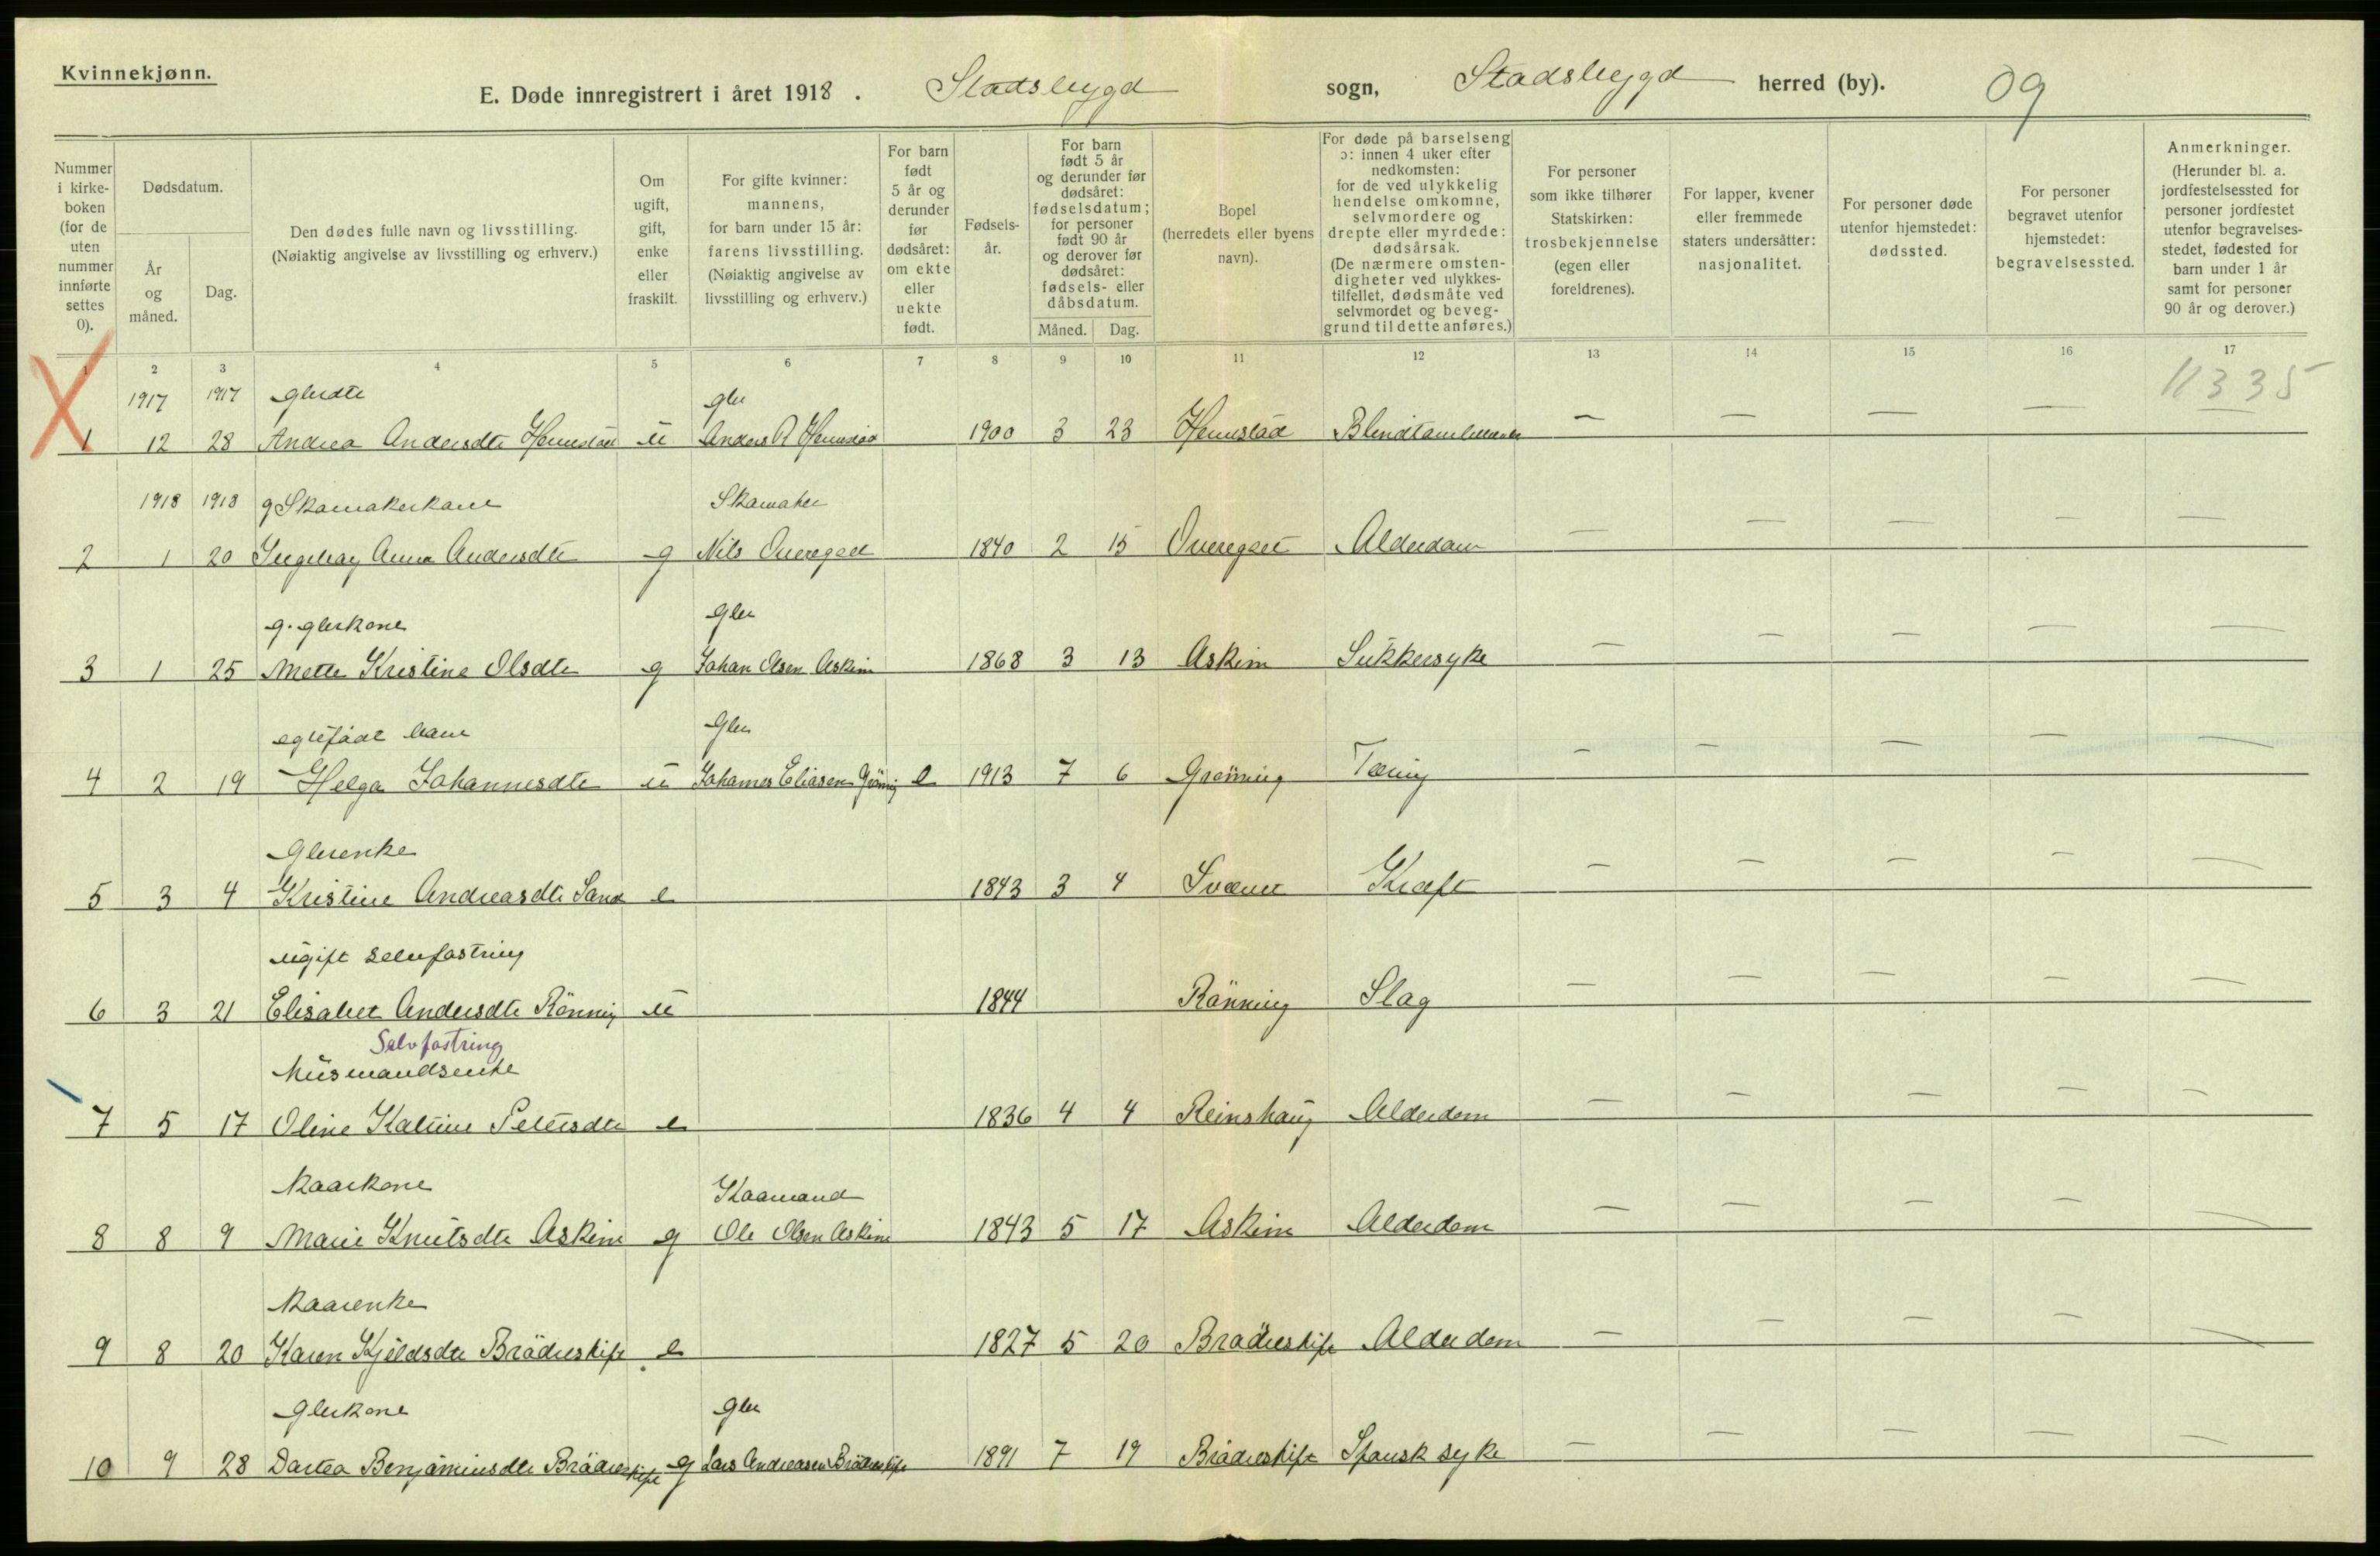 Kvinnekjønn.
E. Døde innregistrert i året 1918 . Stadsbygd sogn, Stadsbygd herred (by). 09
Nummer i kirke-boken (for de uten nummer innførte settes 0).
Dødsdatum.
År og måned.
Dag.
Den dødes fulle navn og livsstilling.
(Nøiaktig angivelse av livsstilling og erhverv.)
Om ugift, gift, enke eller fraskilt.
For gifte kvinner: mannens, for barn under 15 år: farens livsstilling. (Nøiaktig angivelse av livsstilling og erhverv.)
For barn født 5 år og derunder før dødsåret: om ekte eller uekte født.
Fødsels-år.
For barn født 5 år og derunder før dødsåret: fødselsdatum; for personer født 90 år og derover før dødsåret: fødsels- eller dåbsdatum.
Måned. Dag.
Bopel (herredets eller byens navn).
For døde på barselseng ɔ: innen 4 uker efter nedkomsten: for de ved ulykkelig hendelse omkomne, selvmordere og drepte eller myrdede: dødsårsak. (De nærmere omsten-digheter ved ulykkes-tilfellet, dødsmåte ved selvmordet og beveg-grund til dette anføres.)
For personer som ikke tilhører Statskirken: trosbekjennelse (egen eller foreldrenes).
For lapper, kvener eller fremmede staters undersåtter: nasjonalitet.
For personer døde utenfor hjemstedet: dødssted.
For personer begravet utenfor hjemstedet: begravelsessted.
Anmerkninger. (Herunder bl. a. jordfestelsessted for personer jordfestet utenfor begravelses-stedet, fødested for barn under 1 år samt for personer 90 år og derover.)
1 2 3 4 5 6 7 8 9 10 11 12 13 14 15 16 17
1917 1917 gbrdtr gbr 11335
1 12 28 Andrea Andersdtr Hermstad u Anders A Hermstad 1900 3 23 Hermstad —
1918 1918 g Skomakerkone Skomaker
2 1 20 Ingebray Anna Andersdtr g Nils Overegset 1840 2 15 Overegset Alderdom —
g. gbrkone gbr
3 1 25 Mette Kristine Olsdtr g Johan Olsen Askim 1868 3 13 Askim Sukkersyke —
egtefødt barn Gbr
4 2 19 Helga Johannesdtr u Johannes Eliasen Grönning e 1913 7 6 Grönning Tæring —
Gbrenke
5 3 4 Kristine Andreasdtr Sand e 1843 3 4 Kræft —
ugift selvfostring
6 3 21 Elisabet Andersdtr Rönning u 1844 Rönning Slag —
Selvfostring
husmandsenke
7 5 17 Oline Katrine Petersdtr e 1836 4 4 Reinshaug Alderdom —
Kaarkone Kaarmand
8 8 9 Marie Knutsdtr Askim g Ole Olsen Askim 1843 5 17 Askim Alderdom —
Kaarenke
9 8 20 Karen Kjeldsdtr Bröderskift e 1827 5 20 Bröderskift Alderdom —
Gbrkone gbr
10 9 28 Dartea Benjaminsdtr Bröderskift g Lars Andreasen Bröderskift 1891 7 19 Bröderskift Spansk syke —